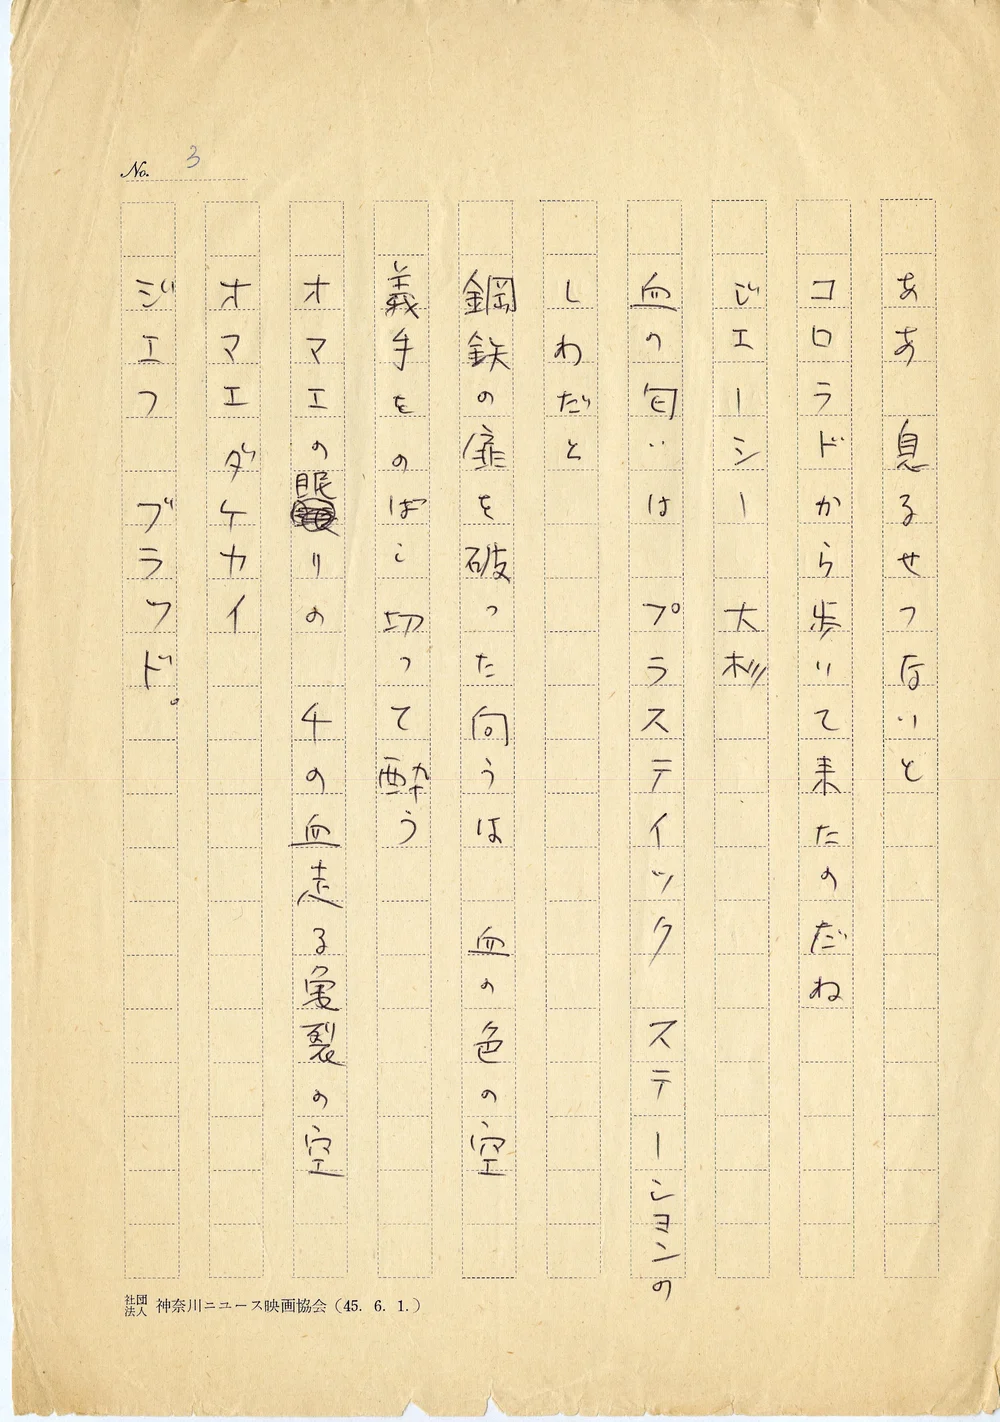 No. 3
ああ　息るせつないと
コロラドから歩いて来たのだね
ジエーシー　大杉
血の匂いは　プラステイック　ステーションの
しわだと
鋼鉄の扉を破った向うは　血の色の空
義手をのばし　切って酔う
オマエの眠りの　千の血走る亀裂の空
オマエダケカイ
ジエフ　ブラッド。
社団法人 神奈川ニュース映画協会（45. 6. 1.）